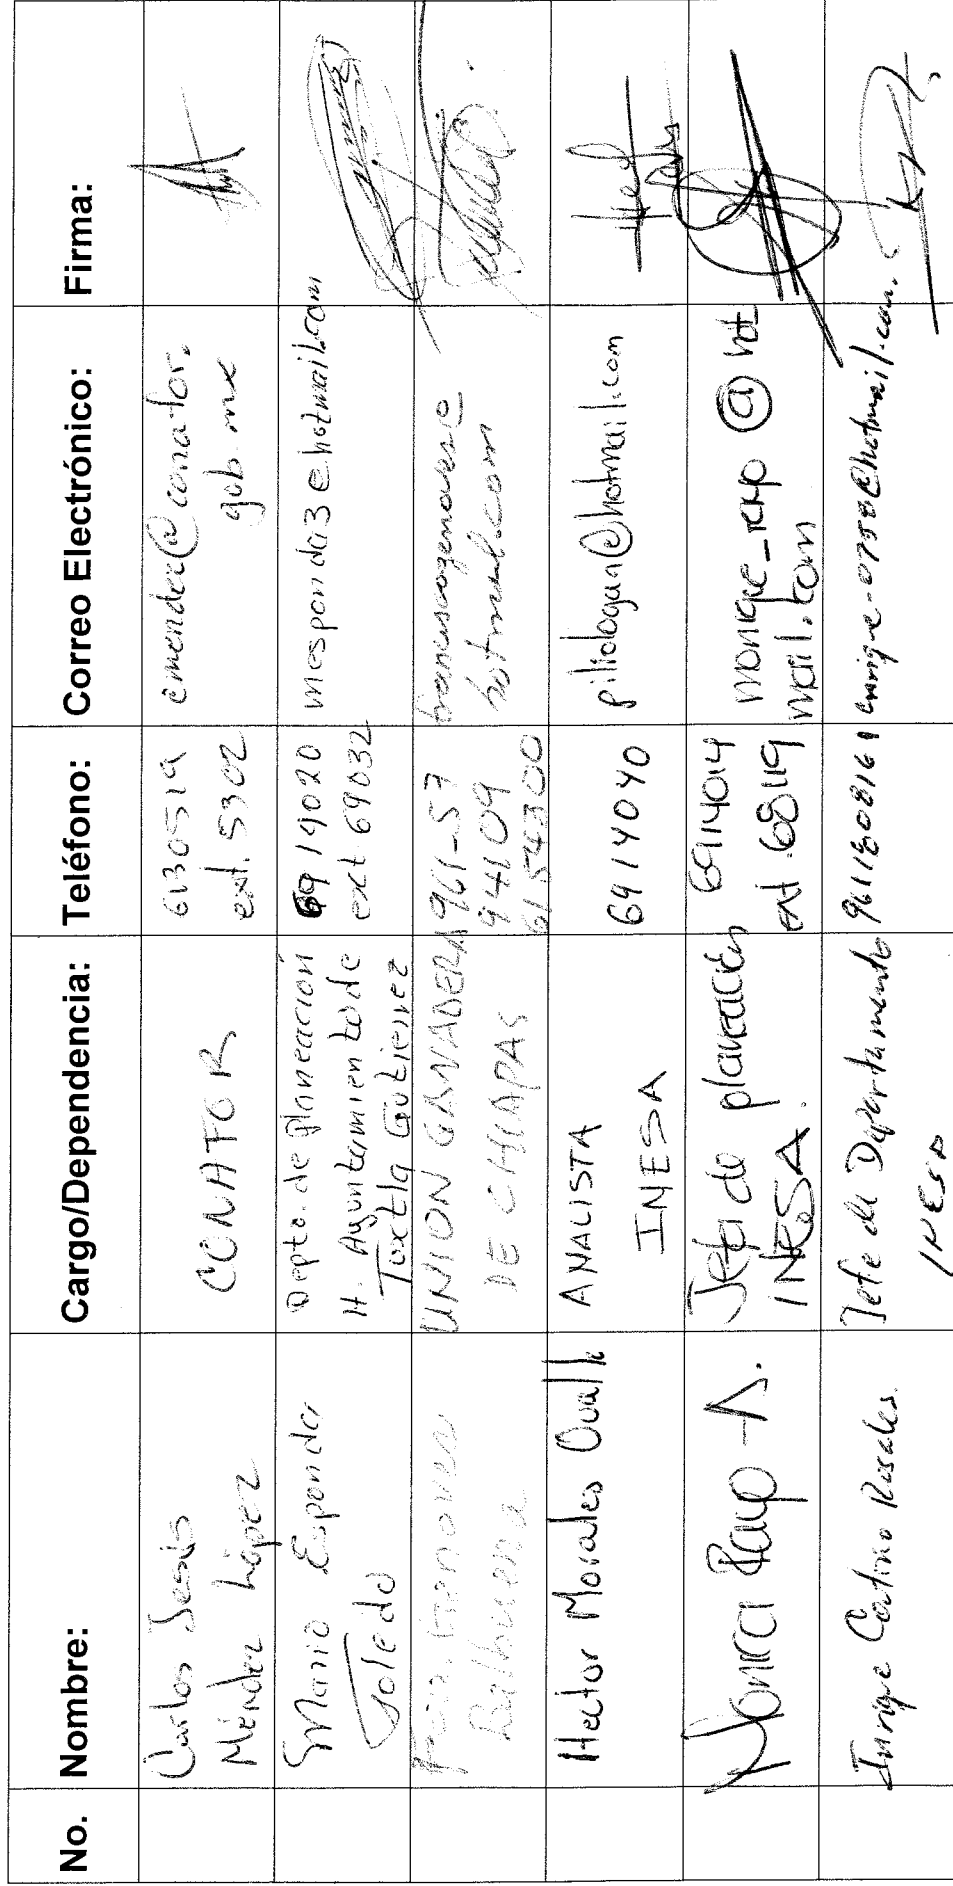 No. Nombre: Cargo/Dependencia: Teléfono: Correo Electrónico: Firma:
Carlos Jesús
Méndez López
CONAFOR
6130519
ext. 5302
cmendez@conafor.
gob.mx
Mario Esponda
Toledo
Depto. de planeación
H. Ayuntamiento de
Tuxtla Gutierrez
6919020
ext 69032
mesponda3@hotmail.com
UNION GANADERA
DE CHIAPAS
961-57
94109
6154300
hotmail.com
Hector Morales Ovalle
ANALISTA
INESA
6914040
piliologan@hotmail.com
Jefa de planeación
INESA
6914014
ext.68119
@hot
mail.com
Enrique Rosales
Jefe de Departamento
INESA
9611808161